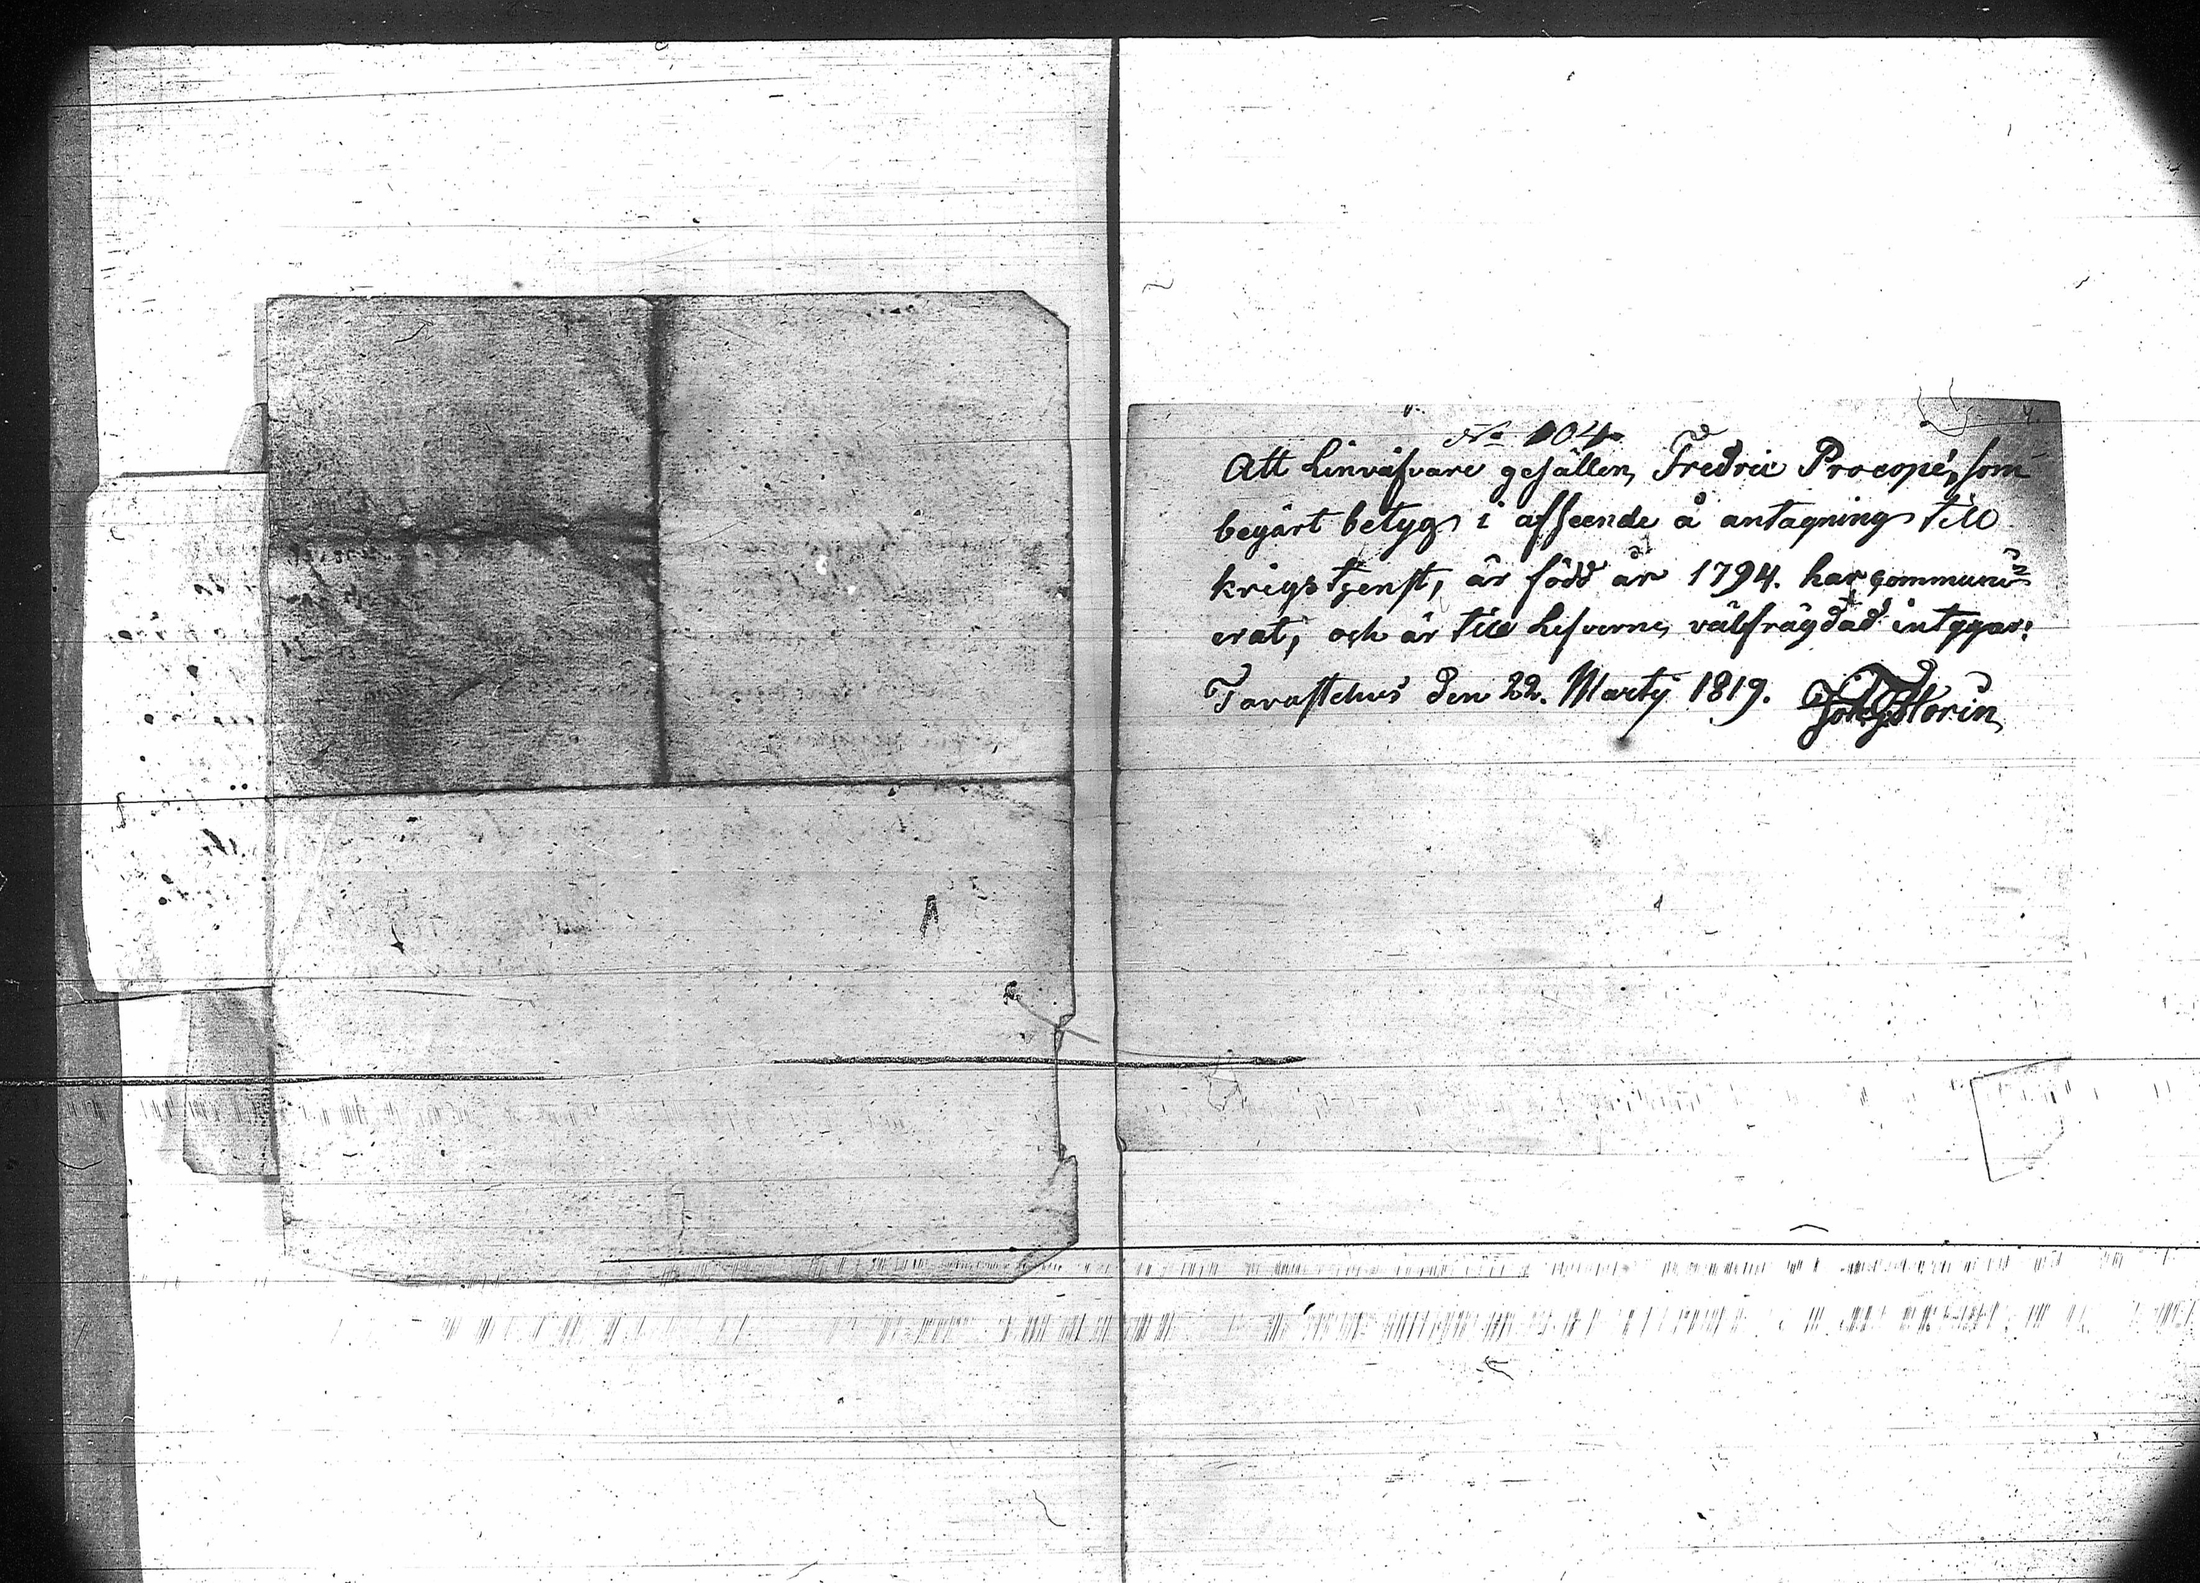 No 104.
Att Linväfvare gesällen, Fredric Procopé, som
begärt betyg i afseende å antagning till
krigstjenst, är född år 1794. har communi=
erat, och är till Lefverne välfrägdad intygar:
Tavastehus den 22. Martij 1819. Joh. Florin